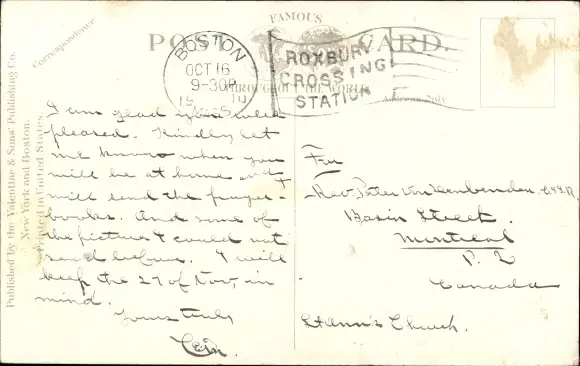 FAMOUS
POST CARD.
THROUGHOUT THE WORLD
BOSTON
OCT 16
9-30P
19 10
MASS
ROXBURY
CROSSING
STATION
Correspondence
Address Only
Published by the Valentine & Sons' Publishing Co.
New York and Boston.
Printed in United States.
I am glad you were
pleased. Kindly let
me know when you
will be at home and I
will send the prayer-
books. And some of
the pictures I could not
send before. I will
keep the 27 of Nov, in
mind.
Yours truly
For
Rev. Peter C.SS.R.
Basin Street.
Montreal
P. Q
Canada
St Ann's Church.